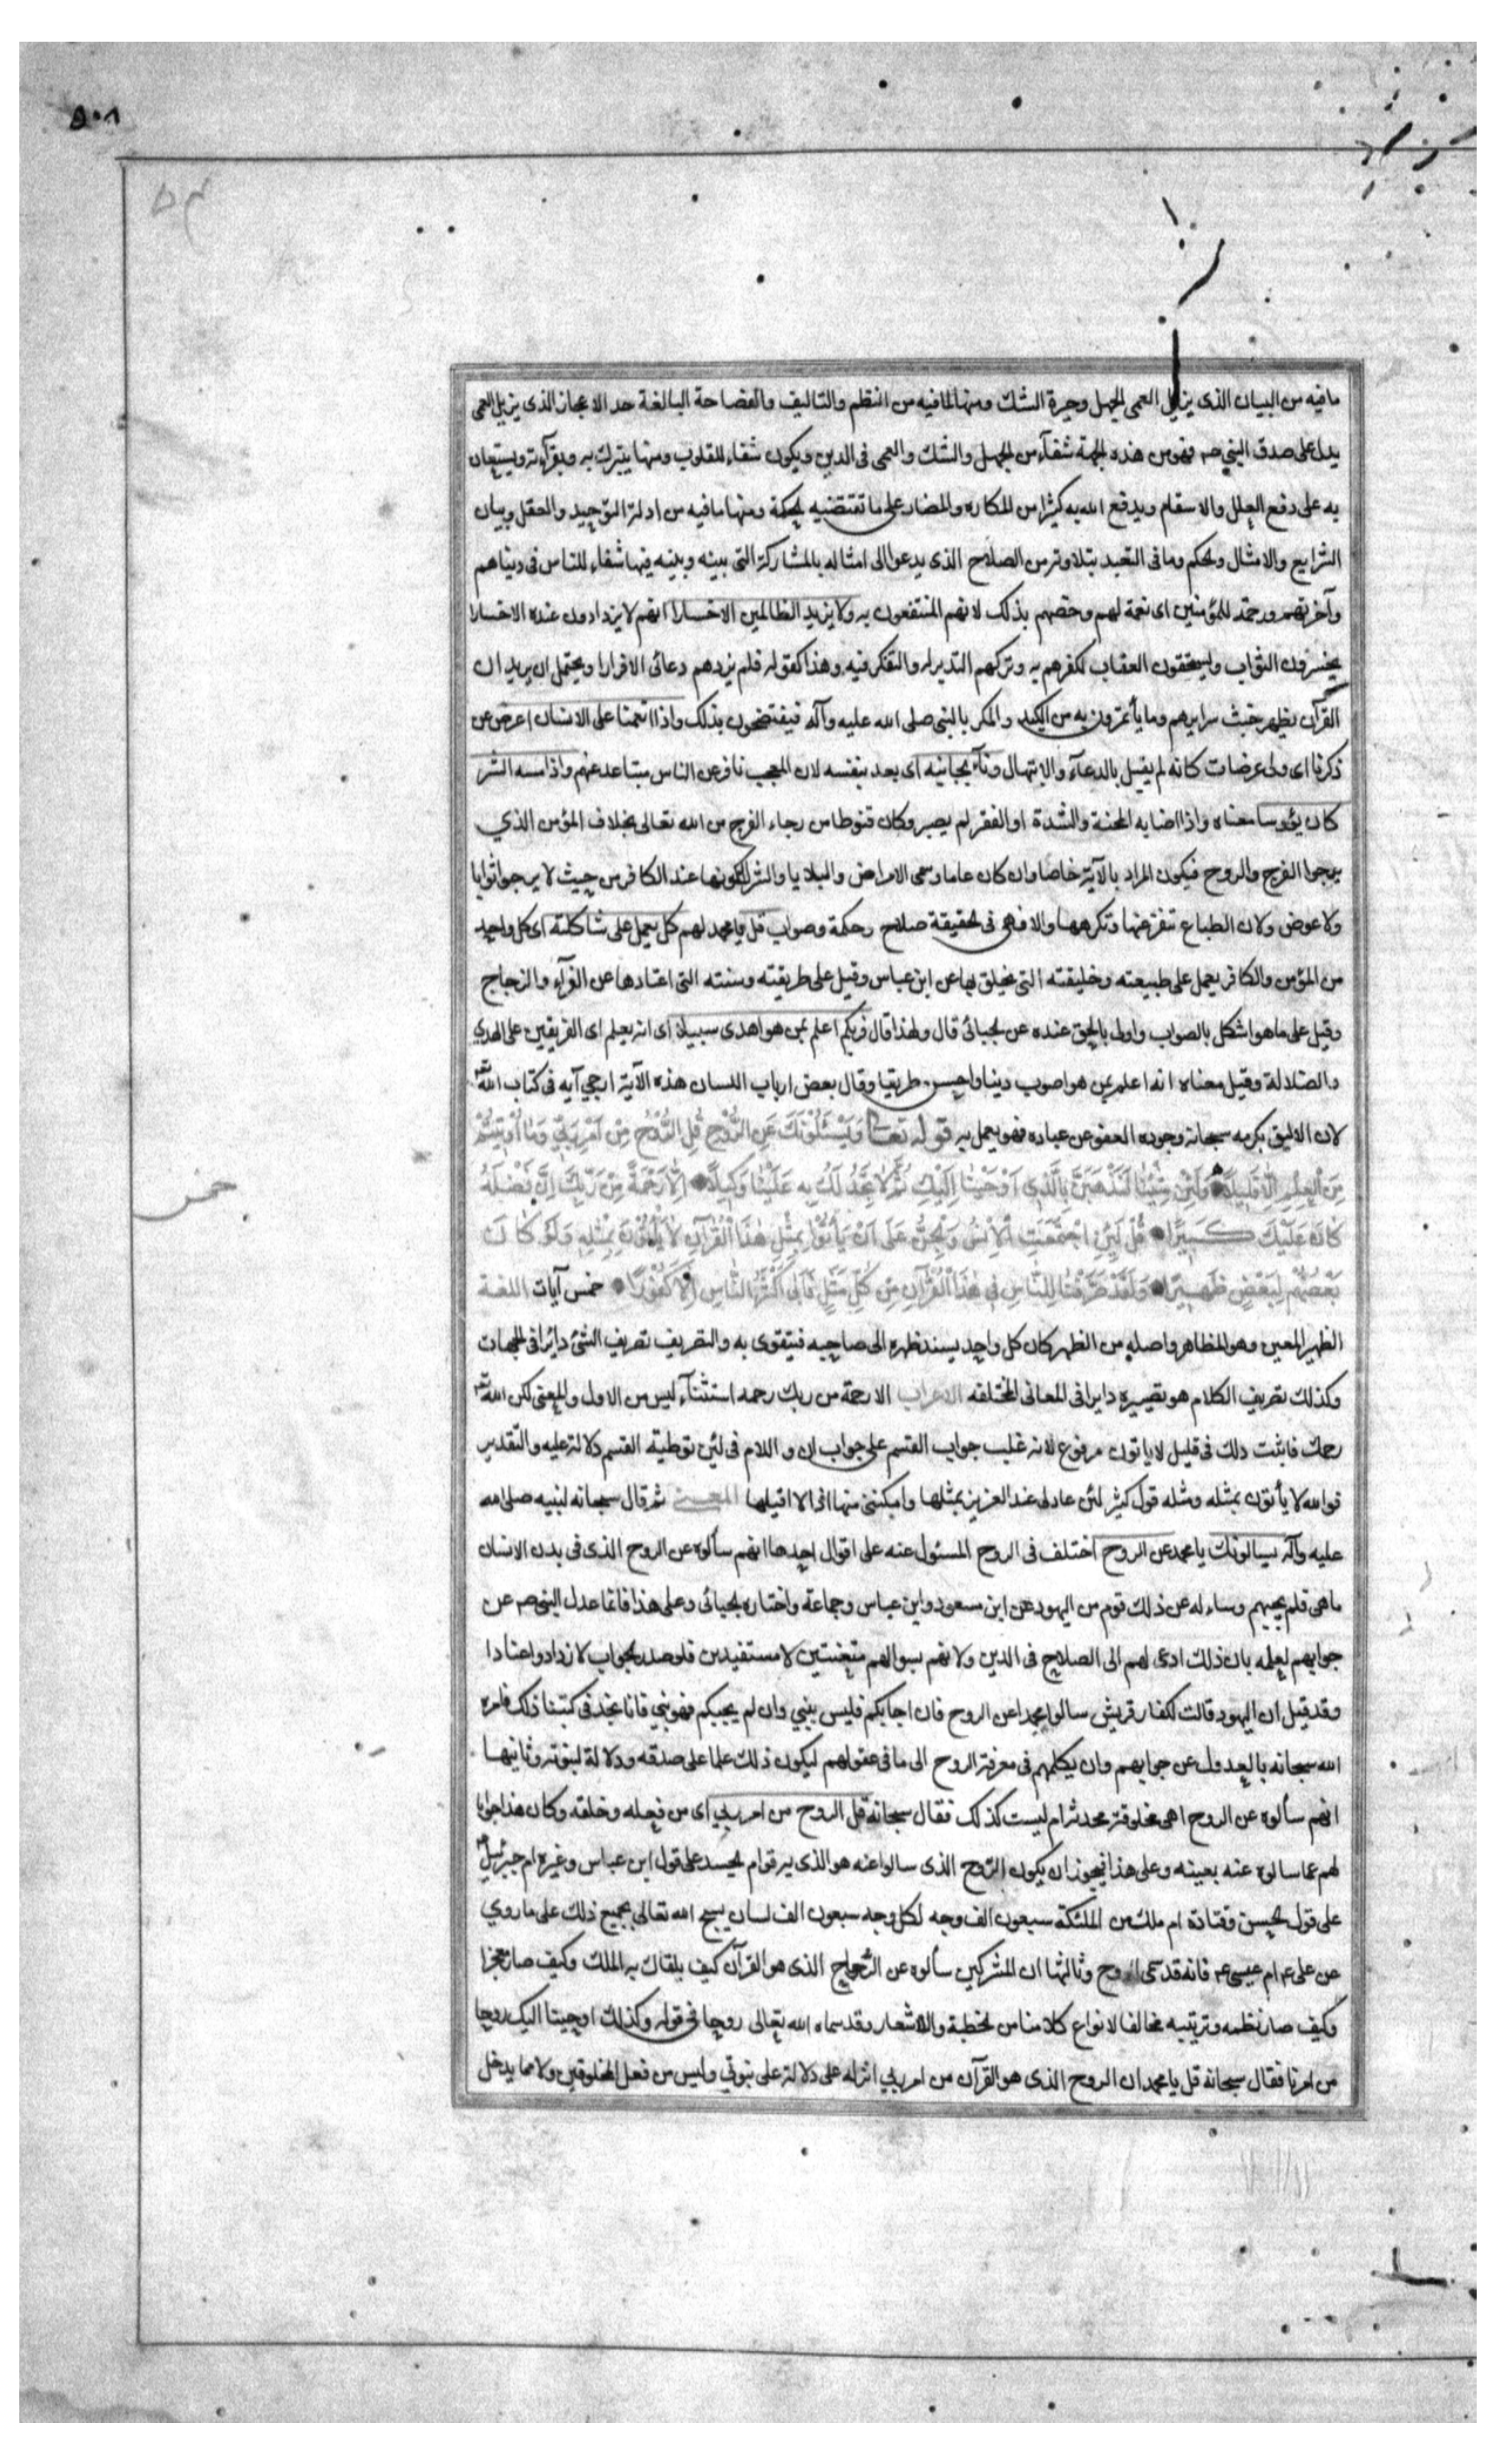 ٥٠٨
مافيه من البيان الذى يزيل العمى لجهل وحيرة الشك ومنها لمافيه من النظم والتاليف والفصاحة البالغة حد الاعجاز الذى يزيل العمى
يدل على صدق النبي صم فهو من هذه لجهة شفآء من لجهل والشك والعمى فى الدين ويكون شفاء للقلوب ومنها يتبرك به وبقرآءته ويستعان
به على دفع العلل والاسقام ويدفع الله به كثيرا من المكاره والمضار على ما تقتضيه لحكمة ومنها مافيه من ادلة التوحيد والعقل وبيان
الشرايع والامثال ولحكم ومافى التعبد بتلاوته من الصلاح الذى يدعوا الى امثاله بالمشاركة التى بينه وبينه فيها شفاء للناس فى دنياهم
وآخرتهم ورحمة للمؤمنين اى نعمة لهم وخصهم بذلك لانهم المنتفعون به ولا يزيد الظالمين الاخسارا انهم لا يزدادون عنده الاخسارا
يخسرون الثواب وليستحقون العقاب لكفرهم به وتركهم التدبر له والتفكر فيه وهذا كقوله فلم يزدهم دعائى الافرارا ويحتمل ان يريد ان
القرآن يظهر خبث سرايرهم وما يأتمرون به من الكيد والمكر بالنبى صلى الله عليه وآله فيفتضحون بذلك واذا انعمنا على الانسان اعرض عن
ذكرنا اى ولى عرضات كانه لم يقبل بالدعآء والابتهال ونآء بجانبه اى بعد بنفسه لان المعجب نافر عن الناس متباعد عنهم واذا مسه الشر
كان يؤسا معناه واذا اصابه المحنة والشدة او الفقر لم يصبر وكان قنوطا من رجاء الفرج من الله تعالى بخلاف المؤمن الذي
يرجوا الفرج والروح فيكون المراد بالآية خاصا وان كان عاما وسمى الامراض والبلايا والشر لكونها عند الكافر من حيث لا يرجوا ثوابا
ولا عوض ولان الطباع تنفر عنها وتكرهها والا فهى فى لحقيقة صلاح وحكمة وصواب قل يا محمد لهم كل يعمل على شاكلته اى كل واحد
من المؤمن والكافر يعمل على طبيعته وخليقته التى تخلق بها عن ابن عباس وقيل على طريقته وسنته التى اعتادها عن الفرآء والزجاج
وقيل على ما هو اشكل بالصواب واولى بالحق عنده عن لجبائى قال ولهذا قال فربكم اعلم بمن هو اهدى سبيلا اى انه يعلم اى الفريقين على الهدى
والضلالة وقيل معناه انه اعلم بمن هو اصوب دينا واحسن طريقا وقال بعض ارباب اللسان هذه الآية ارجى آيه فى كتاب الله
لان الاليق بكرمه سبحانه وجوده العفو عن عباده فهو يعمل به قوله تعالى وَيَسْئَلُونَكَ عَنِ الرُّوحِ قُلِ الرُّوحُ مِنْ اَمْرِ رَبِّى وَمَا اُوتِيتُمْ
مِنَ الْعِلْمِ اِلَّا قَلِيلًا وَلَئِنْ شِئْنَا لَنَذْهَبَنَّ بِالَّذِى اَوْحَيْنَا اِلَيْكَ ثُمَّ لَا تَجِدُ لَكَ بِهِ عَلَيْنَا وَكِيلًا اِلَّا رَحْمَةً مِنْ رَبِّكَ اِنَّ فَضْلَهُ
كَانَ عَلَيْكَ كَبِيرًا قُلْ لَئِنِ اجْتَمَعَتِ الْاِنْسُ وَالْجِنُّ عَلَى اَنْ يَأْتُوا بِمِثْلِ هٰذَا الْقُرْآنِ لَا يَأْتُونَ بِمِثْلِهِ وَلَوْ كَانَ
بَعْضُهُمْ لِبَعْضٍ ظَهِيرًا وَلَقَدْ صَرَّفْنَا لِلنَّاسِ فِى هٰذَا الْقُرْآنِ مِنْ كُلِّ مَثَلٍ فَاَبٰى اَكْثَرُ النَّاسِ اِلَّا كُفُورًا خمس آيات اللغة
خمس
الظهير المعين وهو المظاهر واصله من الظهر كان كل واحد يسند ظهره الى صاحبه فيتقوى به والتصريف تصريف الشئ دائرا فى الجهات
وكذلك تصريف الكلام هو تصييره دايرا فى المعانى المختلفه الاعراب الا رحمة من ربك رحمه استثنآء ليس من الاول والمعنى لكن الله
رحمك فاثبت ذلك فى قلبك لا ياتون مرفوع لانه غلب جواب القسم على جواب ان و اللام فى لئن توطية القسم دلالة عليه والتقدير
فوالله لا يأتون بمثله ومثله قول كثير لئن عادلى عبد العزيز بمثلها وامكننى منها اذا لا اقيلها المعنى ثم قال سبحانه لنبيه صلى الله
عليه وآله يسالونك يا محمد عن الروح اختلف فى الروح المسئول عنه على اقوال احدها انهم سألوه عن الروح الذى فى بدن الانسان
ماهى فلم يجبهم وساءله عن ذلك قوم من اليهود عن ابن مسعود وابن عباس وجماعة واختاره لجبائى وعلى هذا فانما عدل النبى صم عن
جوابهم لعلمه بان ذلك ادعى لهم الى الصلاح فى الدين ولانهم بسوالهم متعنتين لا مستفيدين فلو صدر لجواب لازدادوا عنادا
وقد قيل ان اليهود قالت لكفار قريش سالوا محمدا عن الروح فان اجابكم فليس بنبي وان لم يجبكم فهو نبي فانا نجد فى كتبنا ذلك فامره
الله سبحانه بالعدول عن جوابهم وان يكلهم فى معرفة الروح الى ما فى عقولهم ليكون ذلك علما على صدقه ودلالة لنبوته وثانيها
انهم سألوه عن الروح اهى مخلوقة محدثة ام ليست كذلك فقال سبحانه قل الروح من امر ربي اى من فعله وخلقه وكان هذا جوابا
لهم عما سالوه عنه بعينه وعلى هذا فيجوز ان يكون الروح الذى سالوا عنه هو الذى به قوام لجسد على قول ابن عباس وغيره ام جبرئيل
على قول لحسن وقتادة ام ملك من الملئكة سبعون الف وجه لكل وجه سبعون الف لسان يسبح الله تعالى بجميع ذلك على ما روي
عن على ع م ام عيسى ع م فانه قد سمى الروح وثالثها ان المشركين سألوه عن الروح الذى هو القرآن كيف يلقاك به الملك وكيف صار معجزا
وكيف صار نظمه وترتيبه مخالفا لانواع كلامنا من لخطبة والاشعار وقد سماه الله تعالى روحا فى قوله وكذلك اوحينا اليك روحا
من امرنا فقال سبحانه قل يا محمد ان الروح الذى هو القرآن من امر ربي انزله على دلالة على نبوتي وليس من فعل المخلوقين ولا مما يدخل